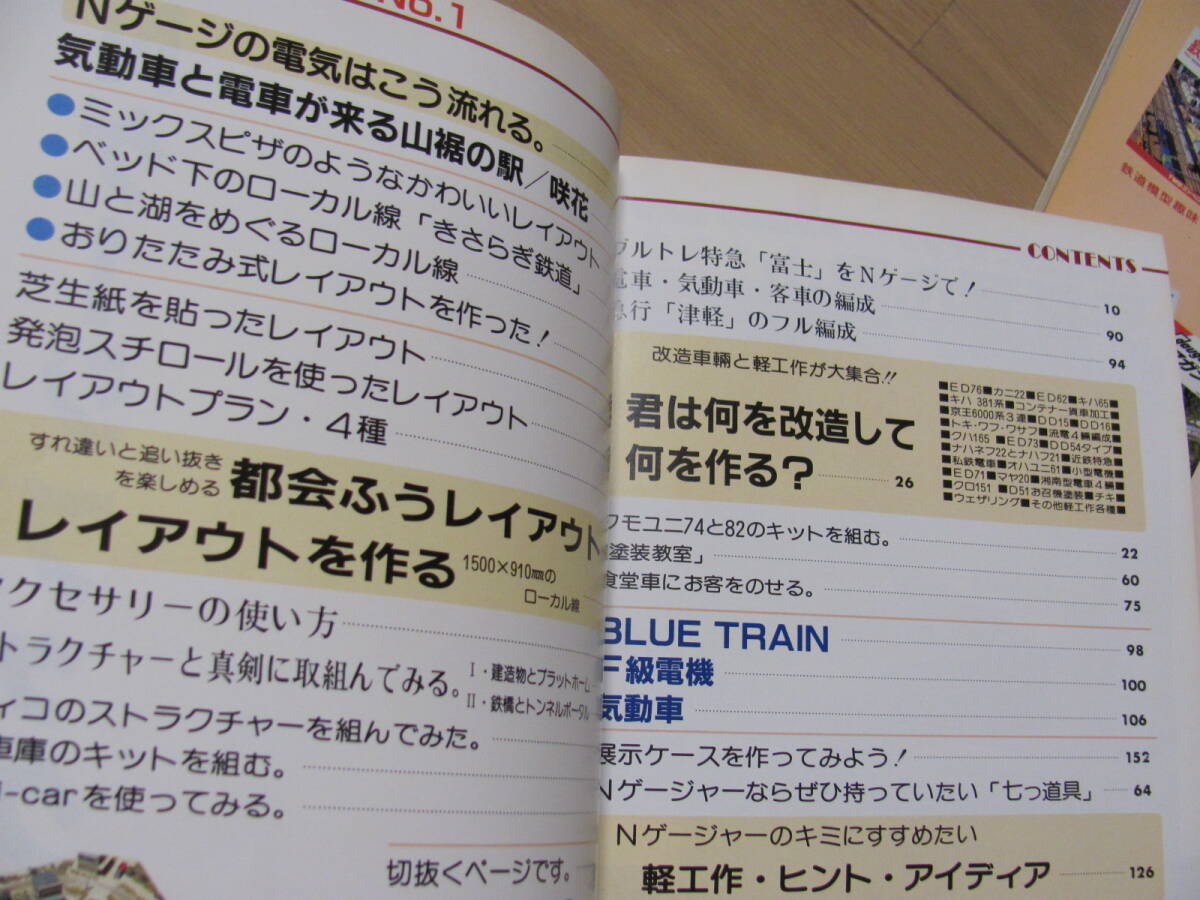 No.1
Nゲージの電気はこう流れる。
気動車と電車が来る山裾の駅/咲花
●ミックスピザのようなかわいいレイアウト
●ベッド下のローカル線「きさらぎ鉄道」
●山と湖をめぐるローカル線
●おりたたみ式レイアウトを作った!
芝生紙を貼ったレイアウト
発泡スチロールを使ったレイアウト
レイアウトプラン・4種
すれ違いと追い抜き
を楽しめる
都会ふうレイアウト
レイアウトを作る
1500×910㎜の
ローカル線
クセサリーの使い方
トラクチャーと真剣に取組んでみる。
I・建造物とプラットホーム
II・鉄橋とトンネルポータル
ィコのストラクチャーを組んでみた。
車庫のキットを組む。
-carを使ってみる。
切抜くページです。
CONTENTS
ブルトレ特急「富士」をNゲージで! 10
電車・気動車・客車の編成 90
急行「津軽」のフル編成 94
改造車輛と軽工作が大集合!!
君は何を改造して
何を作る? 26
■ED76■カニ22■ED62■キハ65■
■キハ 381系■コンテナー貨車加工■
■京王6000系3連■DD15■DD16■
■トキ・ワフ・ワサフ■流電4輛編成■
■クハ165 ■ED73■DD54タイプ■
■ナハネフ22とナハフ21■近鉄特急■
■私鉄電車■オハユニ61■小型電機■
■ED71■マヤ20■湘南型電車4輛■
■クロ151 ■D51お召機塗装■チキ■
■ウェザリング■その他軽工作各種■
クモユニ74と82のキットを組む。 22
塗装教室」 60
食堂車にお客をのせる。 75
BLUE TRAIN 98
F級電機 100
気動車 106
展示ケースを作ってみよう! 152
Nゲージャーならぜひ持っていたい「七っ道具」 64
Nゲージャーのキミにすすめたい
軽工作・ヒント・アイディア 126
鉄道模型趣味